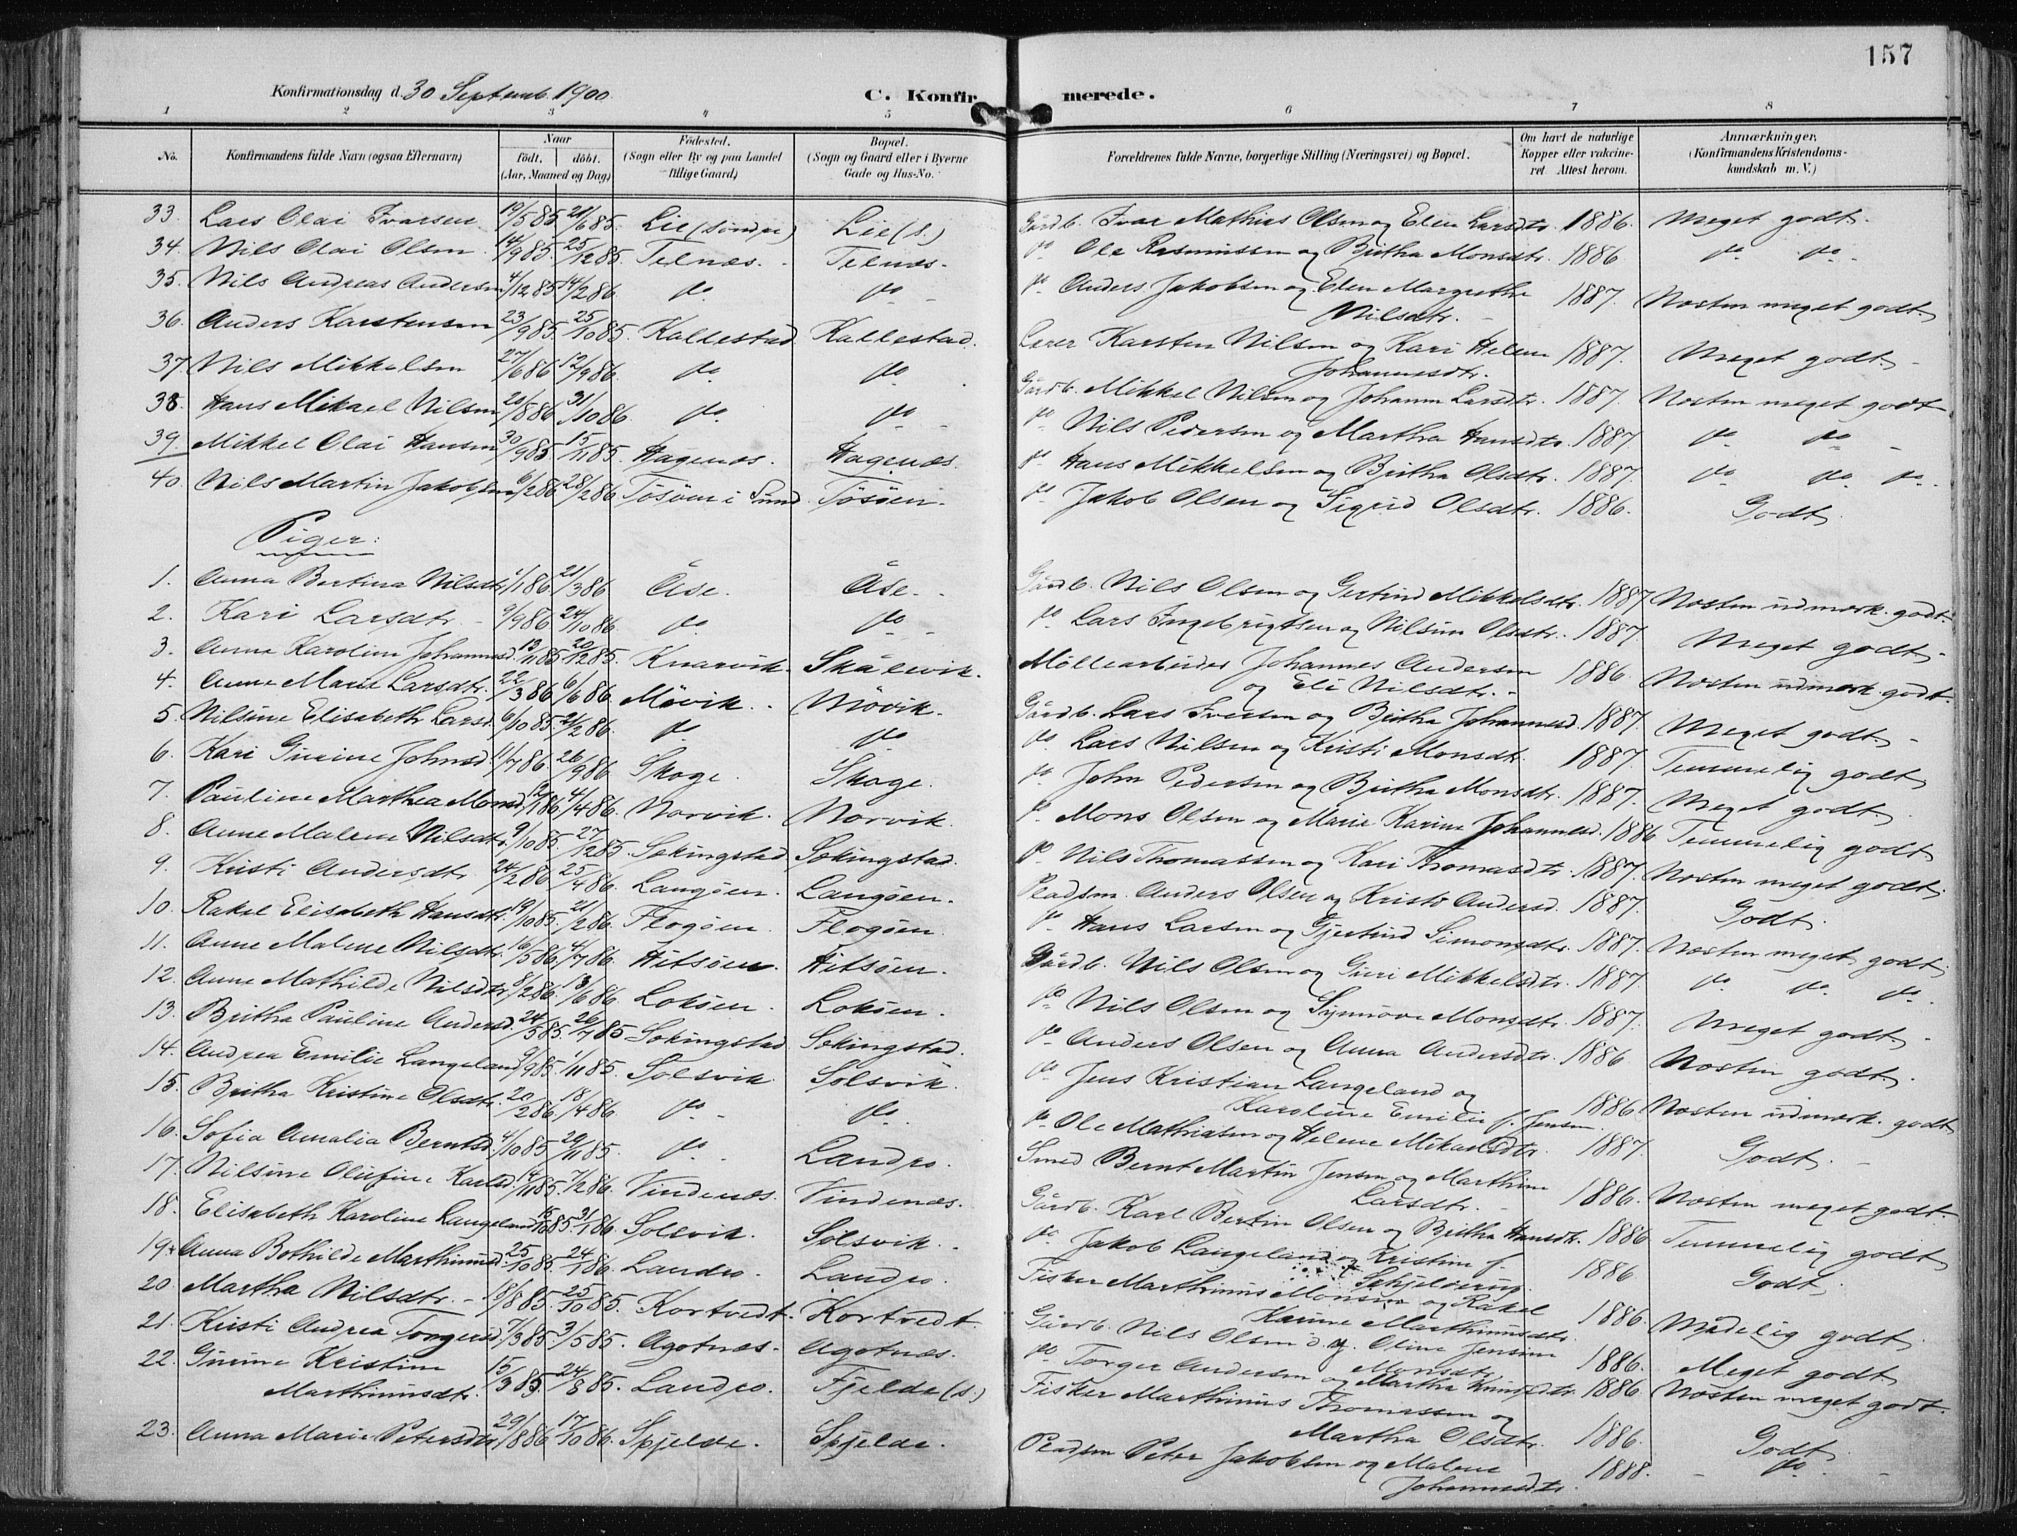 157
Konfirmationsdag d. 30 Septemb. 1900.
C. Konfirmerede.
1 2 3 4 5 6 7 8
No. Konfirmandens fulde Navn (ogsaa Efternavn) Naar født. døbt. (Aar, Maaned og Dag) Fødested. (Sogn eller By og paa Landet tillige Gaard) Bopæl. (Sogn og Gaard eller i Byerne Gade og Hus-No. Forældrenes fulde Navne, borgerlige Stilling (Næringsvei) og Bopæl. Om havt de naturlige Kopper eller vakcineret Attest herom. Anmærkninger. (Konfirmandens Kristendomskundskab m. V.)
33. Lars Olai Ivarsen 19/5 85 21/6 85. Lie (søndre) Lie (s.) Gårdb. Ivar Mathias Olsen og Elen Larsdtr. 1886. Meget godt.
34. Nils Olai Olsen 14/9 85. 25/12 85. Telnæs. Telnæs. do Ole Rasmussen og Birtha Monsdtr. 1886 do do
35. Nils Andreas Andersen 4/12 85 14/2 86. do. do. do Anders Jakobsen og Elen Margrethe Nilsdtr. 1887. Næsten meget godt.
36. Anders Karstensen 23/9 85. 25/10 85. Kallestad Kallestad. Lærer Karsten Nilsen og Kari Helene Johannesdtr. 1887. Meget godt
37. Nils Mikkelsen 27/6 86 12/9 86. do. do. Gårdb. Mikkel Nilsen og Johanna Larsdtr. 1887. Næsten meget godt
38. Hans Mikael Nilsen 20/8 86 31/10 86. do. do. do Nils Pedersen og Martha Hansdtr. 1887 do do
39. Mikkel Olai Hansen 30/9 85 15/11 85. Hagenæs. Hagenæs. do Hans Mikkelsen og Birtha Olsdtr. 1887. do do do.
40. Nils Martin Jakobsen 6/2 86 28/2 86 Tøsøen i Sund Tøsøen. do Jakob Olsen og Sigrid Olsdtr. 1886. Godt
Piger:
1. Anna Bertina Nilsdtr. 1/1 86. 21/3 86 Åse. Åse. Gårdb. Nils Olsen og Gertrud Mikkelsdtr. 1887 Næsten udmærk. godt.
2. Kari Larsdtr. 9/9 86 24/10 86. do do do Lars Ingebrigtsen og Nilsine Olsdtr. 1887. Meget godt.
3. Anna Karoline Johannesd. 13/11 85 20/12 85. Knarvik. Skålevik. Møllearbeider Johannes Andersen og Eli Nilsdtr. 1886 Næsten udmærk. godt.
4. Anne Marie Larsdtr. 22/3 86 6/6 86 Møvik. Møvik. Gårdb. Lars Iversen og Birtha Johannesd. 1887. Meget godt
5. Nilsine Elisabeth Larsd. 6/10 85 21/2 86. do do do Lars Nilsen og Kristi Monsdtr. 1887 Temmelig godt
6. Kari Gurine Johnsd 11/7 86 26/9 86 Skoge. Skoge. do John Pedersen og Birtha Monsdtr. 1887. Meget godt
7. Pauline Marthea Monsd. 12/1 86 4/4 86. Norvik. Norvik. do Mons Olsen og Marie Karine Johannesd. 1886 Temmelig godt
8. Anne Malene Nilsdtr. 9/10 85. 27/12 85. Sekingstad Sekingstad. do Nils Thomassen og Kari Thomasdtr. 1887. Næsten meget godt.
9. Kristi Andersdtr. 24/2 86 25/4 86. Langøen. Langøen. Pladsm. Anders Olsen og Kristi Andersd. 1887. Godt.
10. Rakel Elisabeth Hansdtr. 19/10 85. 21/2 86. Flogøen. Flogøen. do Hans Larsen og Gjertrud Simonsdtr. 1887. Næsten meget godt.
11. Anne Malene Nilsdtr. 16/5 86. 4/7 86. Hitsøen. Hitsøen. Gårdb. Nils Olsen og Guri Mikkelsdtr. 1887 do do do.
12. Anne Mathilde Nilsdtr. 8/2 86. 13/6 86. Lokøen. Lokøen. do Nils Olsen og Synnøve Monsdtr. 1887. Meget godt
13. Birtha Pauline Andersd. 24/5 85. 26/7 85 Sekingstad Sekingstad. do Anders Olsen og Anna Andersdtr. 1886 Næsten godt.
14. Andrea Emilie Langeland 9/9 85. 1/11 85. Solsvik. Solsvik. do Jens Kristian Langeland og Karoline Emilie f. Jensen. 1886 Næsten udmærk. godt
15. Birtha Kristine Olsdtr. 20/2 86 18/4 86. do do. do Ole Mathiasen og Helene Mikaelsdtr. 1887. Godt.
16. Sofia Amalia Berntsd. 4/10 85 29/11 85. do Landro. Smed Bernt Martin Jensen og Marthine Larsdtr. 1886. Næsten meget godt.
17. Nilsine Olufine Karlsd. 14/11 85. 7/2 86. Vindenæs. Vindenæs. Gårdb. Karl Bertin Olsen og Birtha Hansdtr. 1886 Temmelig godt
18. Elisabeth Karoline Langeland 15/10 85 31/1 86 Solsvik. Solsvik. do Jakob Langeland og Kristine f. Schjelderup. 1886 Godt
19. Anna Bothilde Marthinusd. 25/10 85. 24/1 86. Landro. Landro. Fisker Marthinus Monsen og Rakel Karine Marthinusdtr. 1886. Mådelig godt
20. Martha Nilsdtr. 18/8 85. 25/10 85. Kortvedt. Kortvedt. Gårdb. Nils Olsen og Oline Jensine Monsdtr. 1886. Meget godt
21. Kristi Andrea Torgersd. 7/3 85. 3/5 85. Agotnæs. Agotnæs. do Torger Andersen og Martha Knutsdtr. 1886. Næsten meget godt.
22. Gurine Kristine Marthinusdtr. 15/3 85. 24/8 85. Landro. Fjelde (s.) Fisker Marthinus Thomassen og Martha Olsdtr. 1886. Godt
23. Anna Marie Petersdtr. 29/8 86 17/10 86. Spjelde. Spjelde. Pladsm Peter Jakobsen og Malene Johannesdtr. 1888. do.